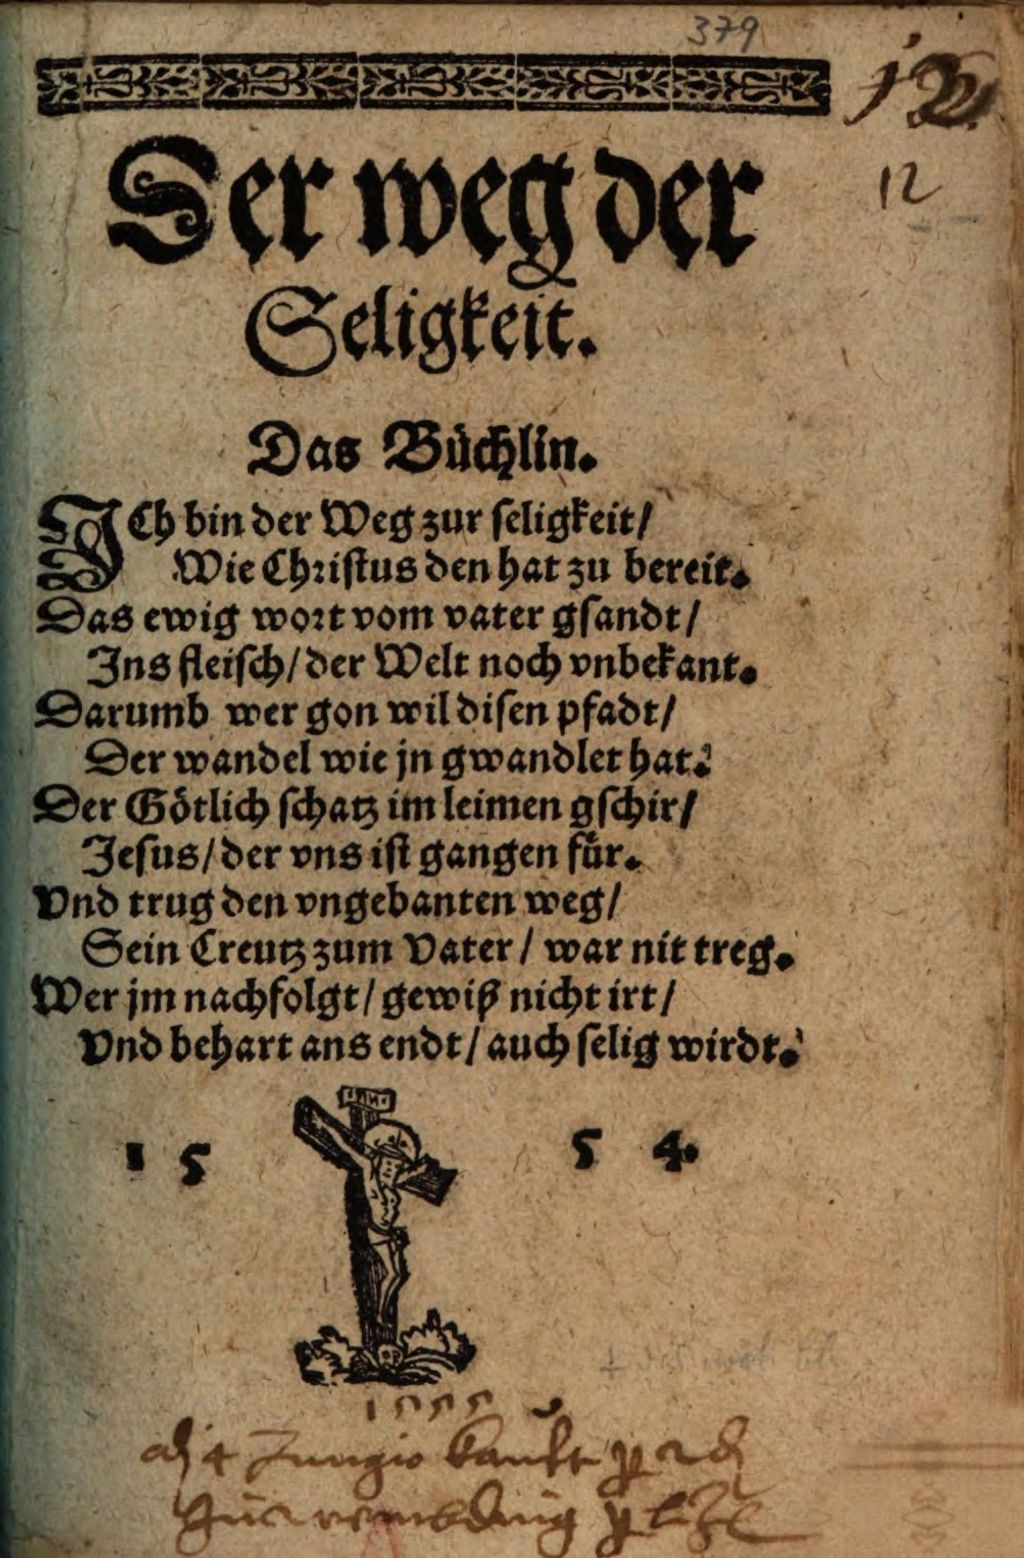 379
12
Der weg der
Seligkeit.
Das Büchlin.
ICh bin der Weg zur seligkeit/
Wie Christus den hat zu bereit.
Das ewig wort vom vater gsandt/
Ins fleisch/ der Welt noch vnbekant.
Darumb wer gon wil disen pfadt/
Der wandel wie jn gwandlet hat.
Der Götlich schatz im leimen gschir/
Jesus/ der vns ist gangen für.
Vnd trug den vngebanten weg/
Sein Creutz zum Vater/ war nit treg.
Wer jm nachfolgt/ gewiß nicht irt/
Vnd behart ans endt/ auch selig wirdt.
15 54.
1555